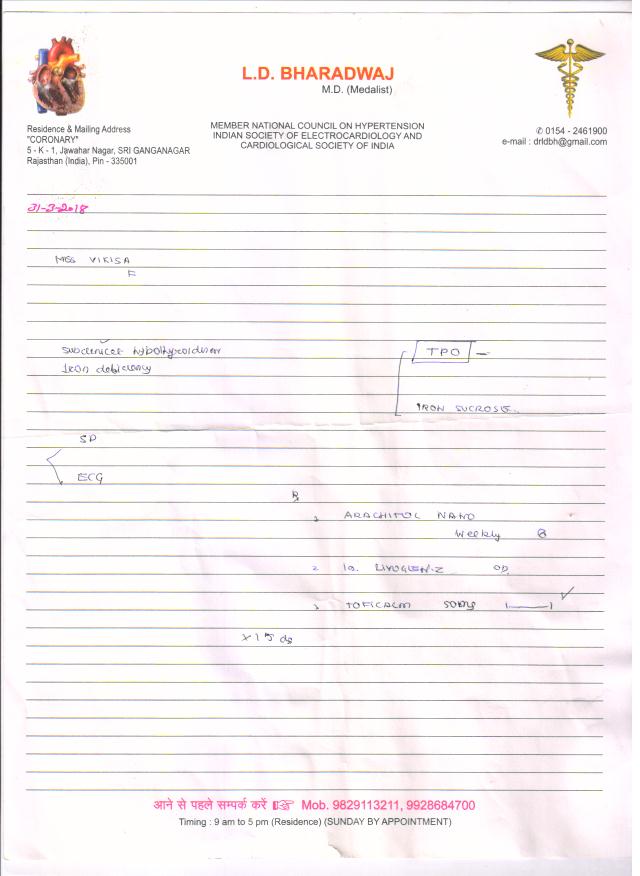 L.D. BHARADWAJ
M.D. (Medalist)
MEMBER NATIONAL COUNCIL ON HYPERTENSION
INDIAN SOCIETY OF ELECTROCARDIOLOGY AND
CARDIOLOGICAL SOCIETY OF INDIA
Residence & Mailing Address
"CORONARY"
5 - K - 1, Jawahar Nagar, SRI GANGANAGAR
Rajasthan (India), Pin - 335001
✆ 0154 - 2461900
e-mail : drldbh@gmail.com
31-3-2018
MISS VIKISA
F
hypothyroidism
Iron deficiency
TPO —
IRON SUCROSE
ECG
ARACHITOL NANO
Weekly
2. LIVOGEN-Z OD
3 TOFICALM 50mg
x 15 ds
आने से पहले सम्पर्क करें ☞ Mob. 9829113211, 9928684700
Timing : 9 am to 5 pm (Residence) (SUNDAY BY APPOINTMENT)